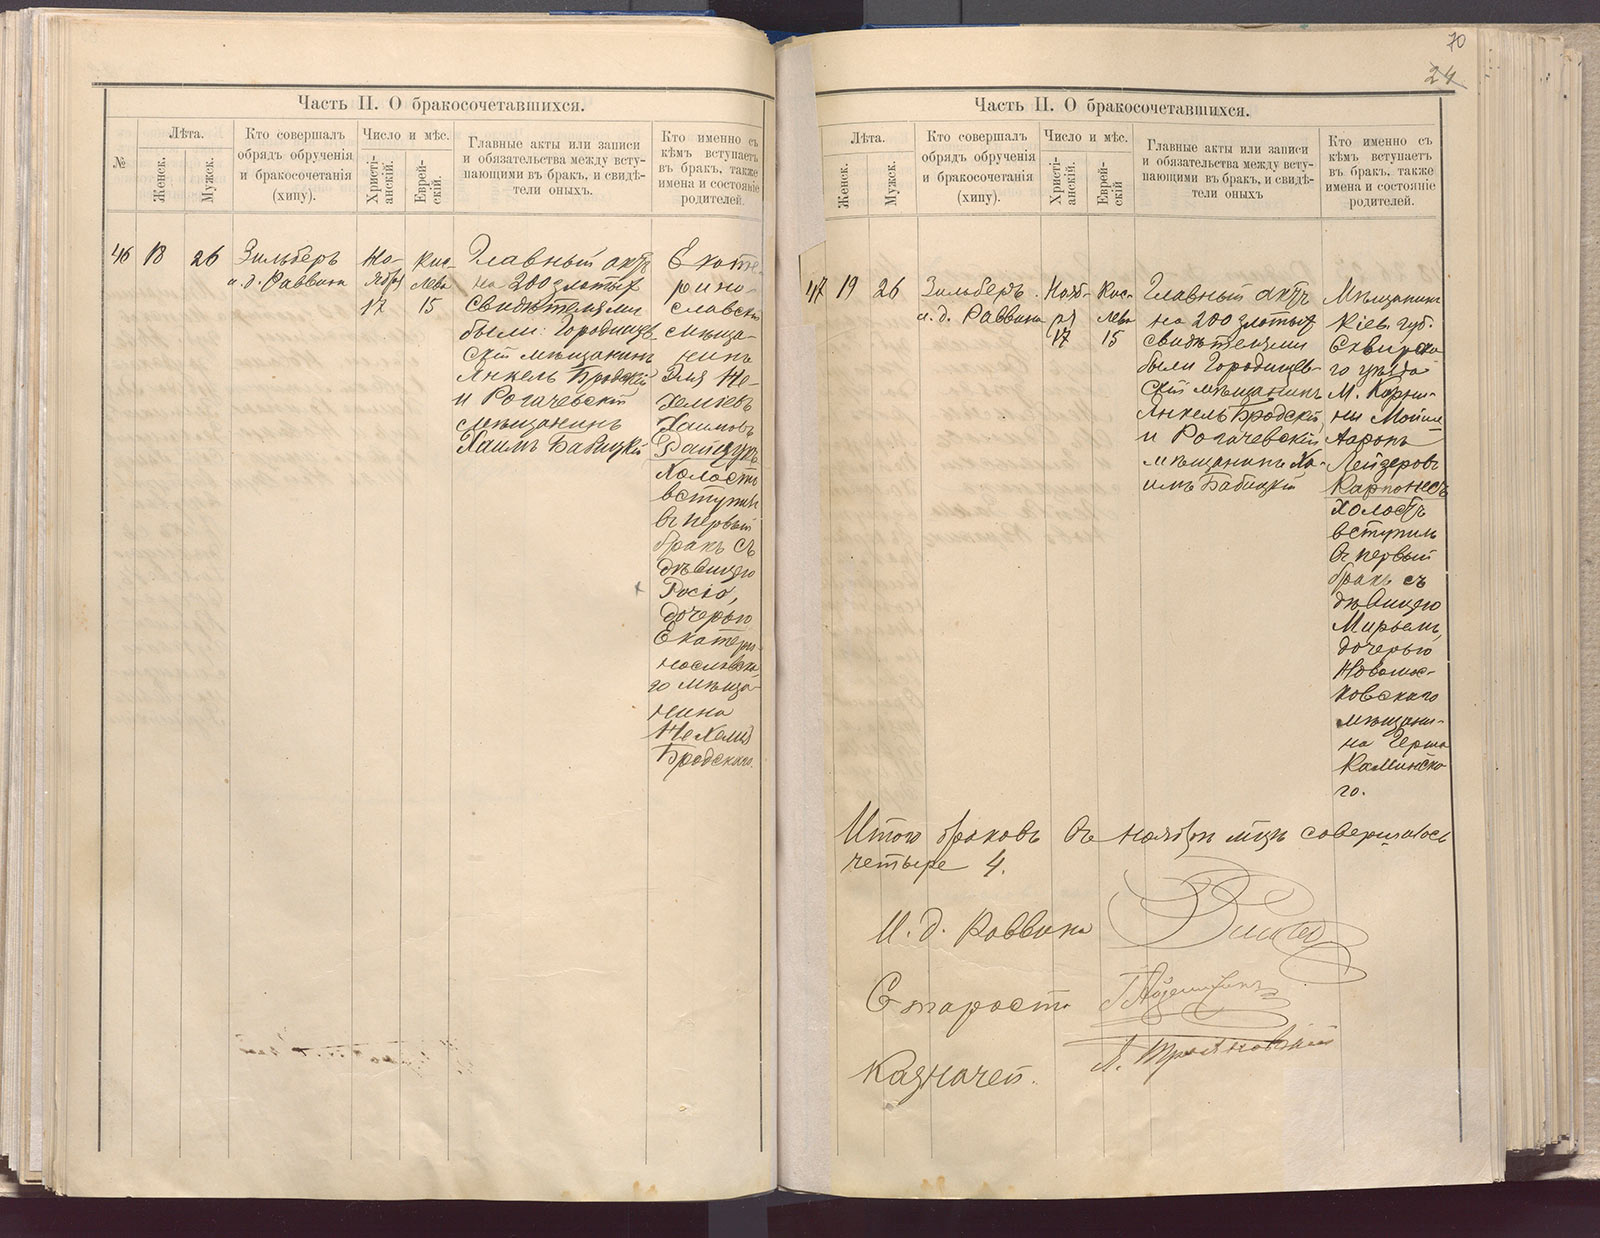 Часть II. О бракосочетавшихся.
№
Лѣта.
Женск.
Мужск.
Кто совершалъ
обрядъ обрученія
и бракосочетанія
(хипу).
Число и мѣс.
Христі-
анскій.
Еврей-
скій.
Главные акты или записи
и обязательства между всту-
пающими въ бракъ, и свидѣ-
тели оныхъ.
Кто именно съ
кѣмъ вступаетъ
въ бракъ, также
имена и состояніе
родителей.
46
18
26
Зильберъ
и. д. Раввина
Но-
ября
17
Кис-
лева
15
Главный актъ
на 200 злотых
свидѣтелями
были: Городищев-
скій мѣщанинъ
Янкель Бродскій
и Рогачевскій
мѣщанинъ
Хаимъ Бабицкій
Екате-
рино-
славскій
мѣща-
нинъ
Не-
хемiевъ
Хаимовъ
Холостъ
вступилъ
въ первый
бракъ съ
дѣвицею
Росею,
дочерью
Екатери-
нославска-
го мѣща-
нина
Нехемiя
Бродскаго.
70
24
Часть II. О бракосочетавшихся.
Лѣта.
Женск.
Мужск.
Кто совершалъ
обрядъ обрученія
и бракосочетанія
(хипу).
Число и мѣс.
Христі-
анскій.
Еврей-
скій
Главные акты или записи
и обязательства между всту-
пающими въ бракъ, и свидѣ-
тели оныхъ
Кто именно съ
кѣмъ вступаетъ
въ бракъ, также
имена и состояніе
родителей.
47
19
26
Зильберъ
и. д. Раввина
Нояб-
ря
17
Кис-
лева
15
Главный актъ
на 200 злотых
свидѣтелями
были Городищев-
скій мѣщанинъ
Янкель Бродскій
и Рогачевскій
мѣщанинъ Ха-
имъ Бабицкій
Мѣщанинъ
Кіев. губ.
Сквирска-
го уѣзда
М. Корни-
ни
Ааронъ
Лейзеровъ
Карпонесъ
Холостъ
вступилъ
въ первый
бракъ съ
дѣвицею
Мирьемъ,
дочерью
Новомос-
ковскаго
мѣщани-
на Герша
Каминска-
го.
Итого браковъ въ ноябрѣ мцѣ совершилось
четыре 4.
И. д. Раввина
Староста
Казначей.